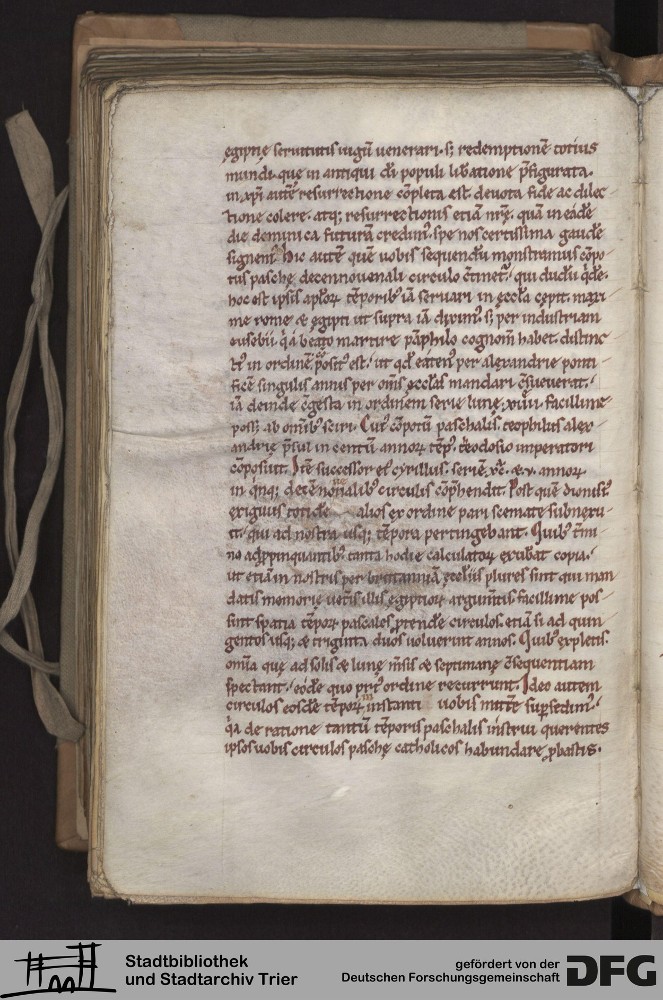 ęgiptię seruitutis iugū uenerari. s; redemptionē totius
mundi. que in antiqui dī populi liƀatione p̄figurata.
in xp̄i autē resurrectione cōpleta est. deuota fide ac dilec
tione colere. atq; resurrectionis etiā nrę̄. quā in eadē
die dominica futurā credim᷒. spe nos certissima gaudē
signem᷒. Hic autē quē uobis sequendū monstramus cōpo
tus paschę. decennouenali circulo c̄tinet᷒. qui dudū q̇dē.
hoc est ipsis aplōꝝ tēporibꝰ iā seruari in ęccła cępit. maxi
me rome & ęgipti ut supra iā diximꝰ. s; per industriam
eusebii q̇ a beato martire pāphilo cognom̄ habet. distinc
tꝰ in ordinē positꝰ est. ut qd̄ eatenꝰ per alexandrie ponti
ficē singulis annis per om̄s ęccłas mandari c̄sueuerat.
iā deinde c̄gesta in ordinem serie lunę .xiiii. facillime
poss; ab omībꝰ sciri. Cuiꝰ cōpotū paschalis. teophilus alex
andrię p̄sul in centū annoꝝ tēpꝰ. teodosio imperatori
cōposuit. Itē successor eiꝰ cyrillus. seriē .xc. & .v. annoꝝ
in q̇nq; decēnouenalibꝰ circulis cōp̄hendit. Post quē dionisiꝰ
exiguus totidē alios ex ordine pari scemate subnexu
it. qui ad nostra usq; tēpora pertingebant. Quibꝰ t̄mi
no adꝓpinquantibꝰ. tanta hodie calculatoꝝ exuƀat copia.
ut etiā in nostris per brittanniā ęcclesiis plures sint qui man
datis memorię uetīs illis ęgiptioꝝ argum̄tis. facillime pos
sint spatia tēpoꝝ pascales ꝓtendē circulos. etiā si ad quin
gentos usq; & triginta duos uoluerint annos. Quibꝰ expletis.
omīa quę ad solis & lunę m̄sis & septimanę c̄sequentiam
spectant. eodē quo priꝰ ordine recurrunt. Ideo autem
circulos eosdē tēpoꝝ instanti uobis mittē supsedimꝰ.
q̇a de ratione tantū tēporis paschalis instrui querentes
ipsos uobis circulos paschę catholicos habundare ꝓbastis.
Stadtbibliothek
und Stadtarchiv Trier
gefördert von der
Deutschen Forschungsgemeinschaft
DFG